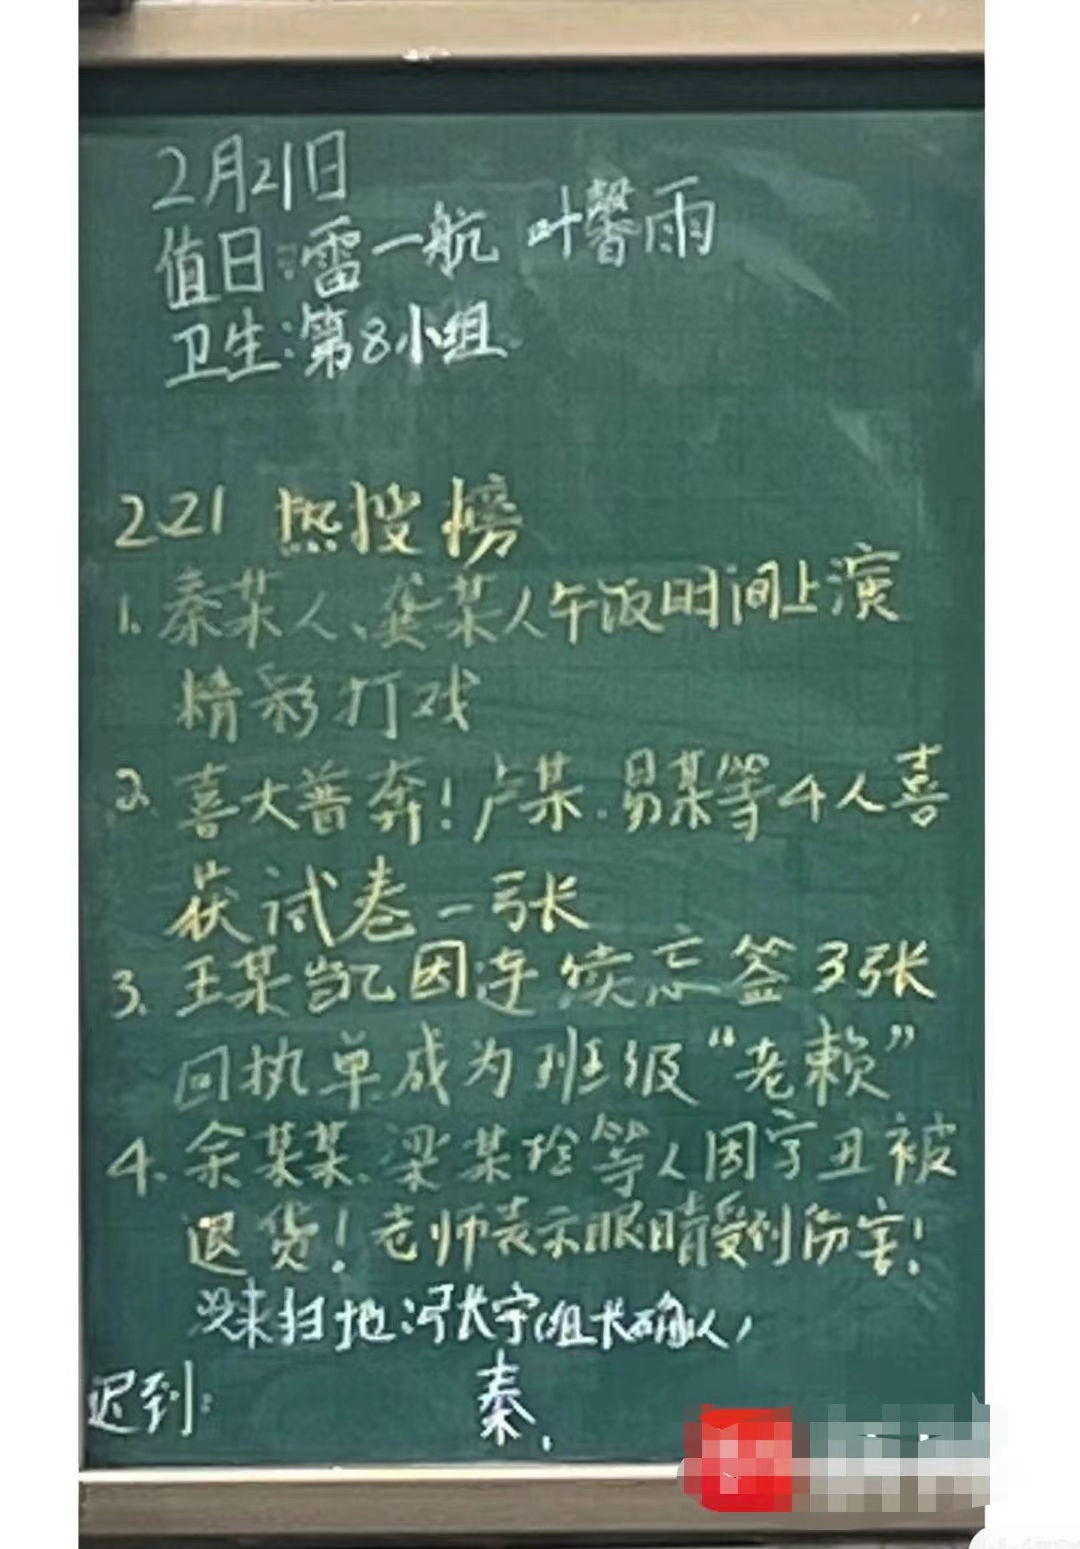 2月21日
值日:雷一航 叶馨雨
卫生:第8小组
2.21 热搜榜
1. 秦某人、龚某人午饭时间上演
精彩打戏
2. 喜大普奔!卢某、易某等4人喜
获试卷一张
3. 王某凯因连续忘签3张
回执单成为班级“老赖”
4. 余某某、梁某等人因字丑被
退货!老师表示眼睛受到伤害!
没来扫地:张宇(组长确认)
迟到: 秦、